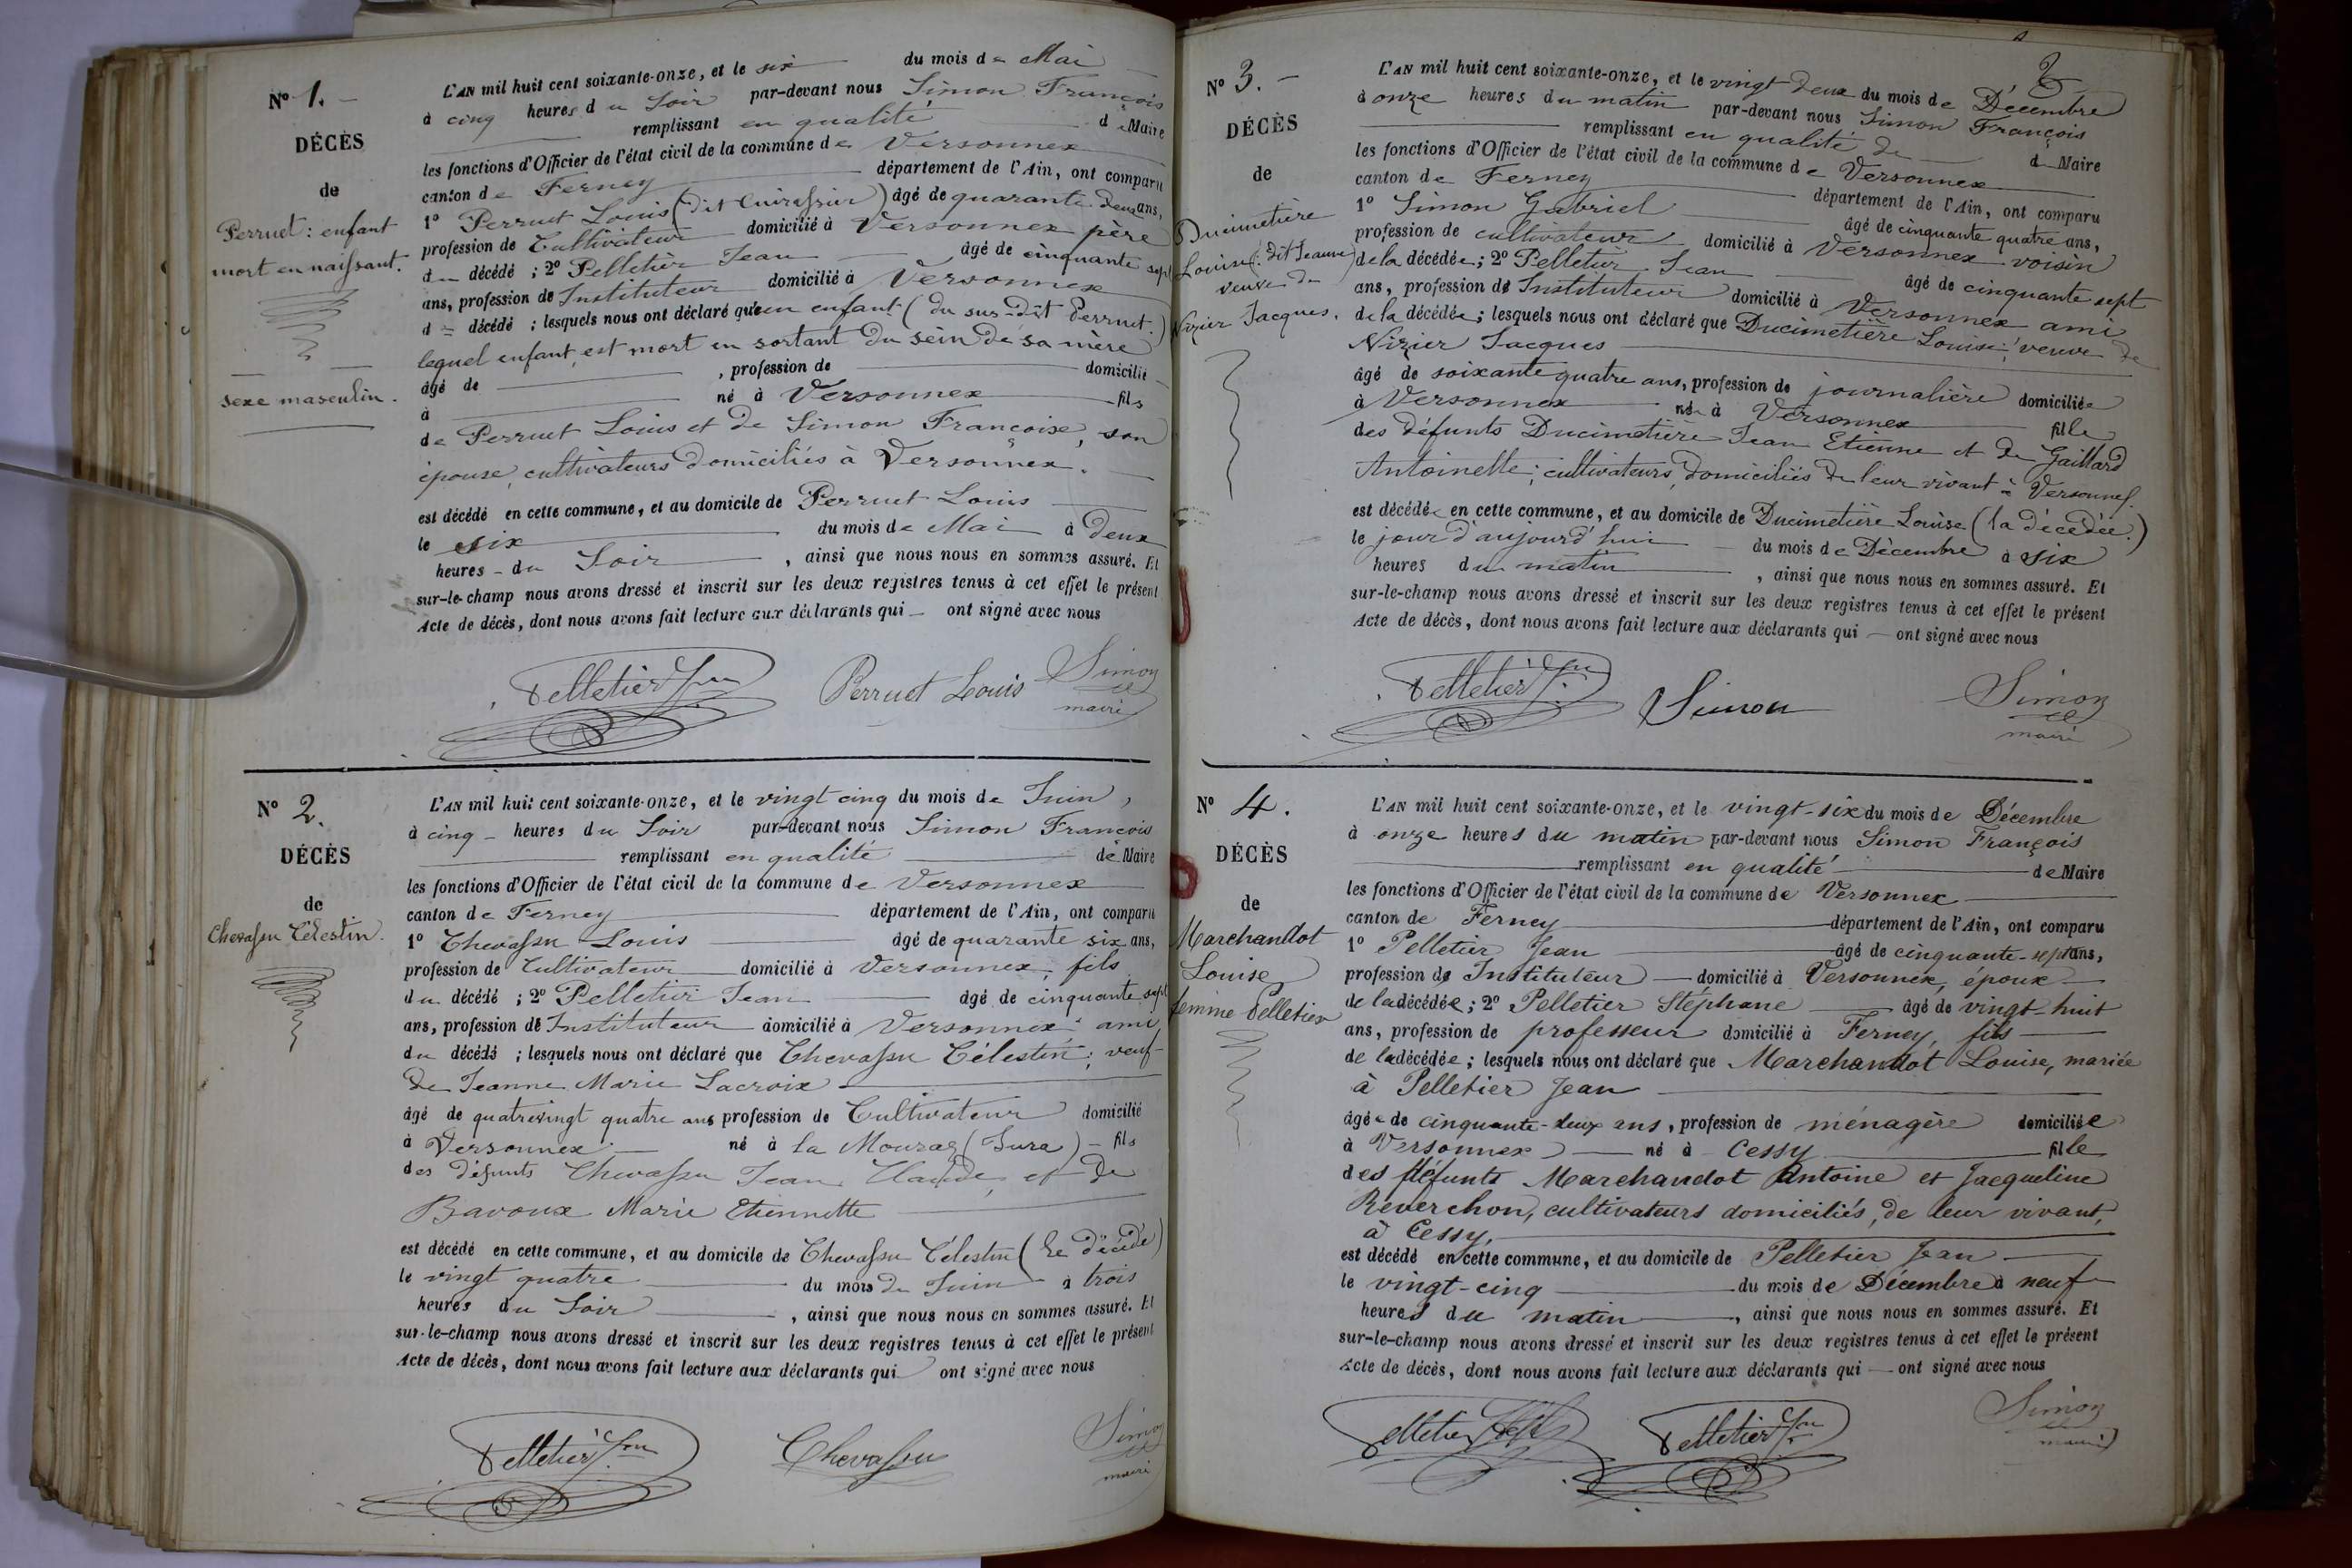 N° 1. –
DÉCÈS
de
Perruet : enfant
mort en naissant.
sexe masculin.
L'AN mil huit cent soixante-onze, et le six du mois de Mai
à cinq heures du Soir par-devant nous Simon François
remplissant en qualité de Maire
les fonctions d'Officier de l'état civil de la commune de Versonnex
canton de Ferney département de l'Ain, ont comparu
1° Perruet Louis (dit Cuirassier) âgé de quarante deux ans,
profession de Cultivateur domicilié à Versonnex père
du décédé ; 2° Pelletier Jean âgé de cinquante sept
ans, profession de Instituteur domicilié à Versonnex
d = décédé ; lesquels nous ont déclaré qu'un enfant (du sus-dit Perruet.)
lequel enfant est mort en sortant du sein de sa mère
âgé de , profession de domicilié
à né à Versonnex fils
de Perruet Louis et de Simon Françoise, son
épouse, cultivateurs domiciliés à Versonnex.
est décédé en cette commune, et au domicile de Perruet Louis
le six du mois de Mai à deux
heures du Soir , ainsi que nous nous en sommes assuré. Et
sur-le-champ nous avons dressé et inscrit sur les deux registres tenus à cet effet le présent
Acte de décès, dont nous avons fait lecture aux déclarants qui ont signé avec nous
Pelletier Jn Perruet Louis Simon
maire
N° 2.
DÉCÈS
de
Chevassu Célestin.
L'AN mil huit cent soixante-onze, et le vingt cinq du mois de Juin,
à cinq heures du Soir par-devant nous Simon François
remplissant en qualité de Maire
les fonctions d'Officier de l'état civil de la commune de Versonnex
canton de Ferney département de l'Ain, ont comparu
1° Chevassu Louis âgé de quarante six ans,
profession de Cultivateur domicilié à Versonnex, fils
du décédé ; 2° Pelletier Jean âgé de cinquante sept
ans, profession de Instituteur domicilié à Versonnex ami
du décédé ; lesquels nous ont déclaré que Chevassu Célestin, veuf
de Jeanne Marie Lacroix
âgé de quatrevingt quatre ans profession de Cultivateur domicilié
à Versonnex né à la Mouraz (Jura) – fils
des défunts Chevassu Jean Claude, et de
Bavoux Marie Etiennette
est décédé en cette commune, et au domicile de Chevassu Célestin (le décédé)
le vingt quatre du mois de Juin à trois
heures du Soir , ainsi que nous nous en sommes assuré. Et
sur-le-champ nous avons dressé et inscrit sur les deux registres tenus à cet effet le présent
Acte de décès, dont nous avons fait lecture aux déclarants qui ont signé avec nous
Pelletier Jn Chevassu Simon
maire
2
N° 3. –
DÉCÈS
de
Ducimetière
Louise (dit Jeanne)
veuve de
Nizier Jacques.
L'AN mil huit cent soixante-onze, et le vingt deux du mois de Décembre
à onze heures du matin par-devant nous Simon François
remplissant en qualité de d Maire
les fonctions d'Officier de l'état civil de la commune de Versonnex
canton de Ferney département de l'Ain, ont comparu
1° Simon Gabriel âgé de cinquante quatre ans,
profession de cultivateur domicilié à Versonnex voisin
de la décédée ; 2° Pelletier Jean âgé de cinquante sept
ans, profession de Instituteur domicilié à Versonnex ami
de la décédée ; lesquels nous ont déclaré que Ducimetière Louise, veuve de
Nizier Jacques
âgé de soixante quatre ans, profession de journalière domiciliée
à Versonnex née à Versonnex fille
des défunts Ducimetière Jean Etienne et de Gaillard
Antoinette ; cultivateurs, domiciliés de leur vivant à Versonnex.
est décédée en cette commune, et au domicile de Ducimetière Louise (la décédée.)
le jour d'aujourd'hui du mois de Décembre à six
heures du matin , ainsi que nous nous en sommes assuré. Et
sur-le-champ nous avons dressé et inscrit sur les deux registres tenus à cet effet le présent
Acte de décès, dont nous avons fait lecture aux déclarants qui — ont signé avec nous
Pelletier Jn Simon Simon
maire
N° 4.
DÉCÈS
de
Marchandot
Louise
femme Pelletier
L'AN mil huit cent soixante-onze, et le vingt-six du mois de Décembre
à onze heures du matin par-devant nous Simon François
remplissant en qualité de Maire
les fonctions d'Officier de l'état civil de la commune de Versonnex
canton de Ferney département de l'Ain, ont comparu
1° Pelletier Jean âgé de cinquante-sept ans,
profession de Instituteur domicilié à Versonnex, époux
de la décédée ; 2° Pelletier Stéphane âgé de vingt-huit
ans, profession de professeur domicilié à Ferney, fils
de la décédée ; lesquels nous ont déclaré que Marchandot Louise, mariée
à Pelletier Jean
âgée de cinquante-deux ans, profession de ménagère domiciliée
à Versonnex né à Cessy fille
des défunts Marchandot Antoine et Jacqueline
Reverchon, cultivateurs domiciliés, de leur vivant,
à Cessy,
est décédé en cette commune, et au domicile de Pelletier Jean
le vingt-cinq du mois de Décembre à neuf
heures du matin , ainsi que nous nous en sommes assuré. Et
sur-le-champ nous avons dressé et inscrit sur les deux registres tenus à cet effet le présent
Acte de décès, dont nous avons fait lecture aux déclarants qui — ont signé avec nous
Pelletier Pelletier Jn Simon
maire